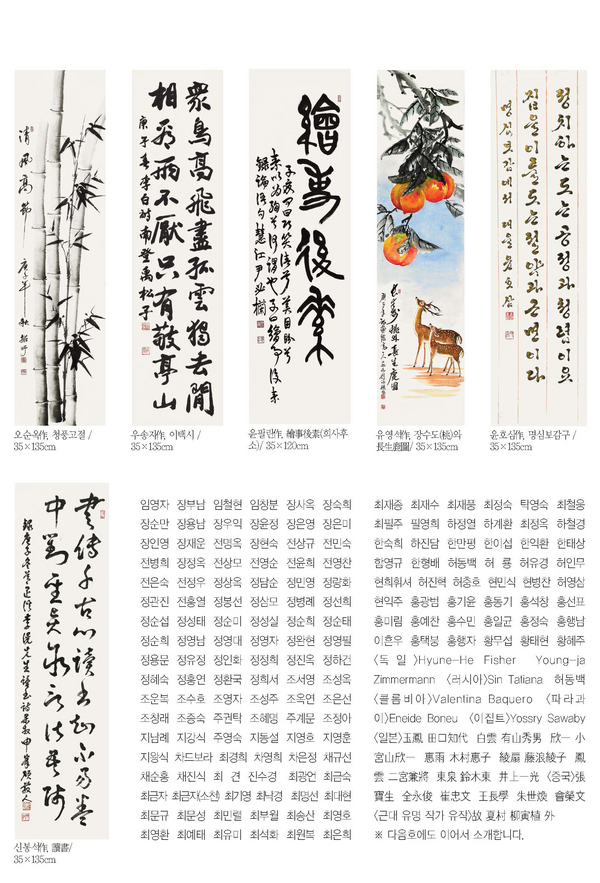 清風高節
庚子年
衆鳥高飛盡孤雲獨去閒
相看兩不厭只有敬亭山
庚子春李白詩南登禹松子
繪事後素
정치하는 도는 공정과 청렴이요
집을 이룰 도는 절약과 근면이다
명심보감에서
오순옥作, 청풍고절 /
35×135cm
우송자作, 이백시 /
35×135cm
윤필란作, 繪事後素(회사후
소)/ 35×120cm
유영석作, 장수도(桃)와
長生鹿圖/ 35×135cm
윤호심作, 명심보감구 /
35×135cm
신봉석作, 讀書/
35×135cm
임영자 장부남 임철현 임창분 장사옥 장숙희
장순만 장용남 장우익 장윤정 장은영 장은미
장인영 장재운 전명옥 장현숙 전상규 전민숙
전병희 장정옥 전상모 전영순 전윤희 전영찬
전은숙 전정우 장상옥 정담순 정민영 정광화
정관진 전홍열 정봉선 정삼모 정병례 정선희
정순섭 정성태 정순미 정상실 정순희 정순태
정순희 정영남 정영대 정영자 정완현 정영필
정용문 정유정 정인화 정정희 정진옥 정하건
정혜숙 정홍연 정환국 정희서 조서영 조성옥
조운복 조수호 조영자 조성주 조옥연 조은선
조창래 조증숙 주권탁 조혜명 주계문 조정아
지남례 지강식 주영숙 지동설 지영호 지영훈
지왕식 차드보라 최경희 차영희 차은정 채규선
채순홍 채진식 최 견 진수경 최광언 최금숙
최금자 최금자(소천) 최기영 최낙경 최명선 최대현
최문규 최문성 최민렬 최부월 최승산 최영호
최영환 최예태 최유미 최석화 최원복 최은희
최재증 최재수 최재풍 최정숙 탁영숙 최철웅
최필주 필영희 하정열 하계환 최정옥 하철경
한숙희 하진담 한만평 한이섭 한익환 한태상
함영규 한형배 허동백 허 룡 허유경 허인무
현희휘셔 허진혁 허충호 현민식 현병찬 허영삼
현익주 홍광범 홍기윤 홍동기 홍석창 홍선표
홍미림 홍예산 홍수민 홍일균 홍정숙 홍행남
이흔우 홍택봉 홍행자 황무섭 황태현 황혜주
〈독 일〉Hyune-He Fisher Young-ja
Zimmermann 〈러시아〉Sin Tatiana 허동백
〈콜롬비아〉Valentina Baquero 〈파라과
이〉Eneide Boneu 〈이집트〉Yossry Sawaby
〈일본〉玉鳳 田口知代 白雲 有山秀男 欣一 小
宮山欣一 惠雨 木村惠子 綾扇 藤浪綾子 鳳
雲 二宮兼將 東泉 鈴木東 井上一光 〈중국〉張
寶生 全永俊 崔忠文 王長學 朱世煥 會榮文
〈근대 유명 작가 유작〉故 夏村 柳寅植 外
※ 다음호에도 이어서 소개합니다.